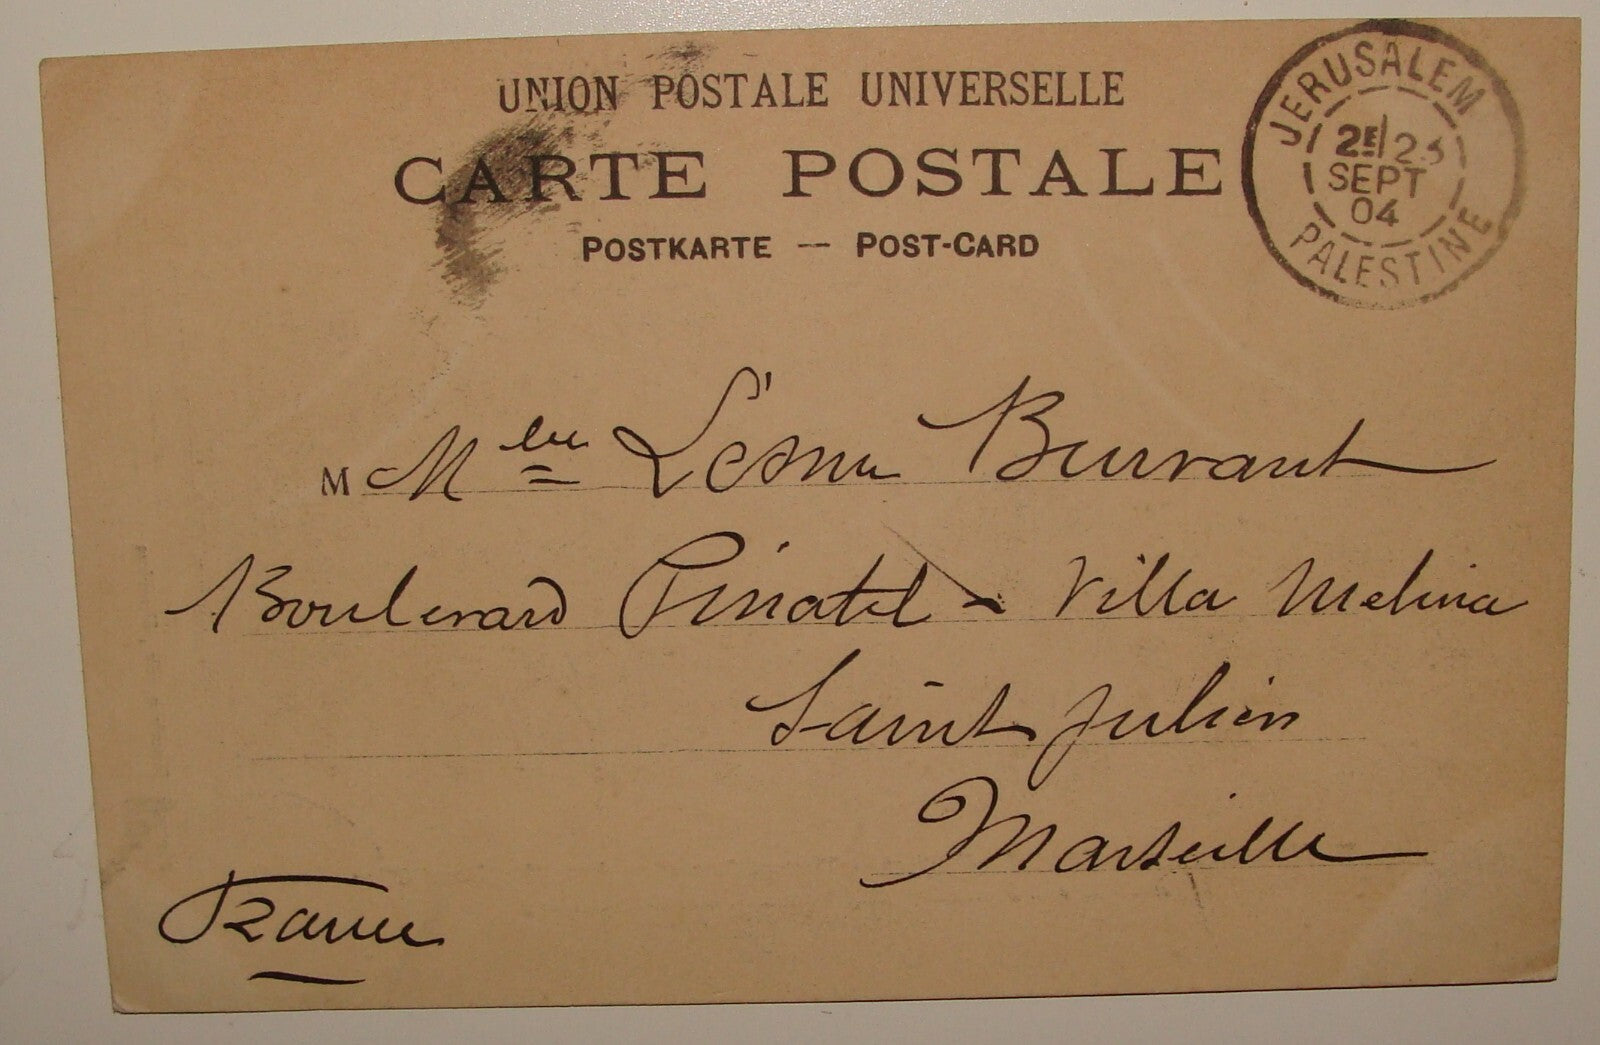 UNION POSTALE UNIVERSELLE
CARTE POSTALE
POSTKARTE — POST-CARD
JERUSALEM
2E
SEPT
04
PALESTINE
M Mlle
Boulevard Pinatel - Villa Melina
Saint Julien
Marseille
France